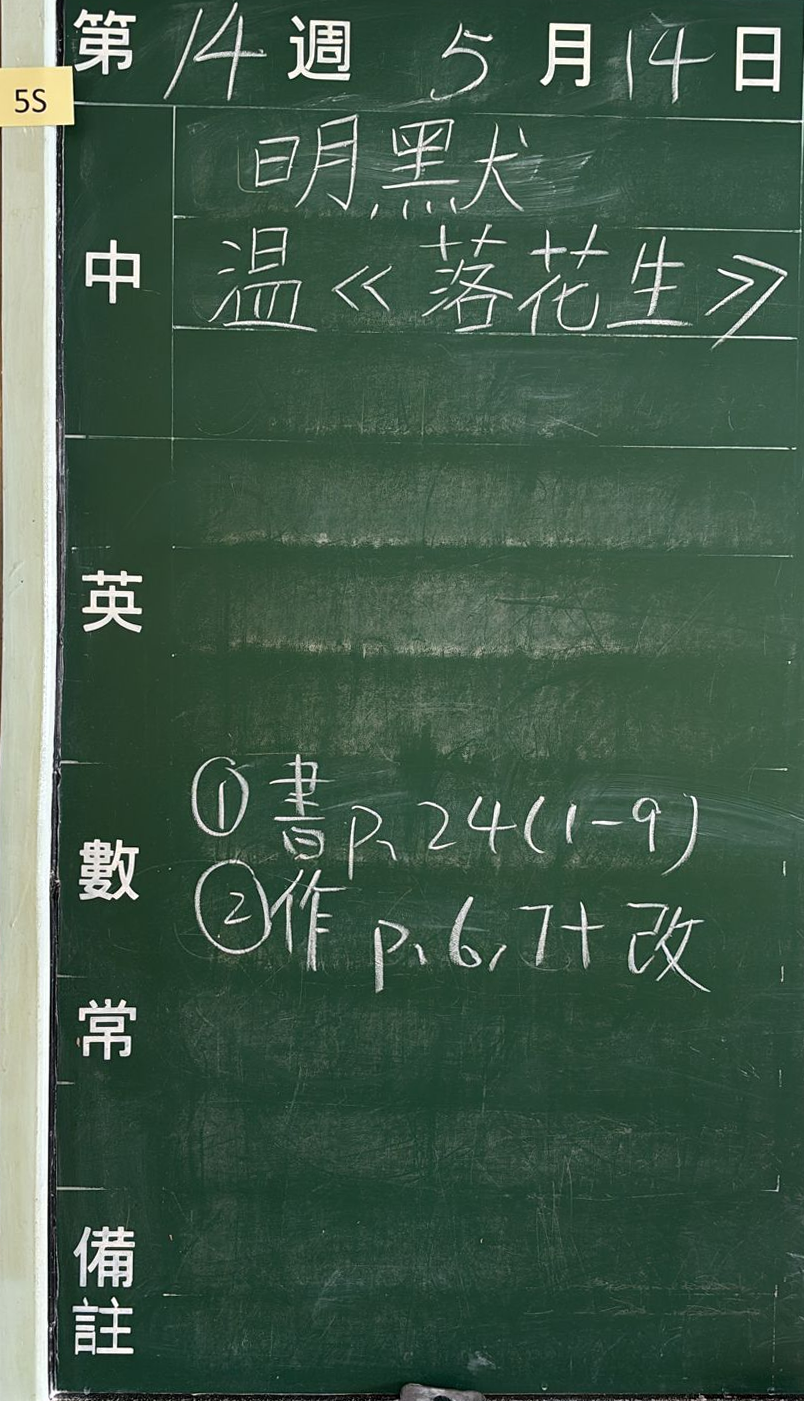 第14週 5月14日
5S
中
明默
温《落花生》
英
數
① 書p、24(1-9)
② 作p、6,7+改
常
備註